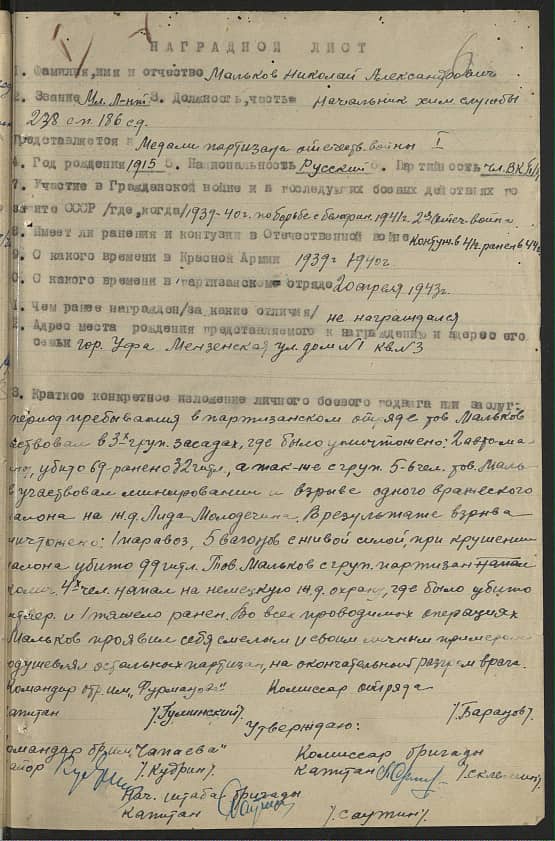 НАГРАДНОЙ ЛИСТ
1. Фамилия, имя и отчество Мальков Николай Александрович
2. Звание Мл. Л-нт 3. Должность, часть Начальник хим службы
238 с.п. 186 с.д.
Представляется к Медали партизана отечеств. войны I
4. Год рождения 1915 5. Национальность Русский 6. Партийность чл. ВКП/б/
7. Участие в Гражданской войне и в последующих боевых действиях по
защите СССР /где, когда/ 1939-40г. по борьбе с 1941г. 2я отеч. война
8. Имеет ли ранения и контузии в Отечественной войне контуж. в 41г. ранен в 44г.
9. С какого времени в Красной Армии 1939г 1940г.
0. С какого времени в партизанском отряде 20 апреля 1943г.
1. Чем ранее награжден /за какие отличия/ не награждался
2. Адрес места рождения представляемого к награждению и адрес его
семьи гор. Уфа Мензенская ул. дом №1 кв. №3
3. Краткое конкретное изложение личного боевого подвига или заслуг:
период пребывания в партизанском отряде тов Мальков
аствовал в 3х груп. засадах, где было уничтожено: 2 автома-
убито 69 ранено 32 гитл., а так-же с груп. 5-6 чел. тов. Маль-
в участвовал минировании и взрыве одного вражеского
шалона на ж.д. Лида-Молодечина. В результате взрыва
ничтожено: 1 паравоз, 5 вагонов с живой силой, при крушении
шалона убито 99 гитл. Тов. Мальков с груп. партизан напал
колич. 4х чел. напал на немецкую ж.д. охрану, где было убито
и 1 тяжело ранен. Во всех проводимых операциях
Мальков проявил себя смелым и своим личным примером
одушевлял остальных партизан, на окончательный разгром врага.
Командир отр. им. „Фурманова" Комиссар отряда
апитан /Гулинский/. /Баранов/.
Утверждаю:
омандир бр. им „Чапаева" Комиссар бригады
айор /Кудрин/. Капитан
Нач. штаба бригады
Капитан /Саутин/.